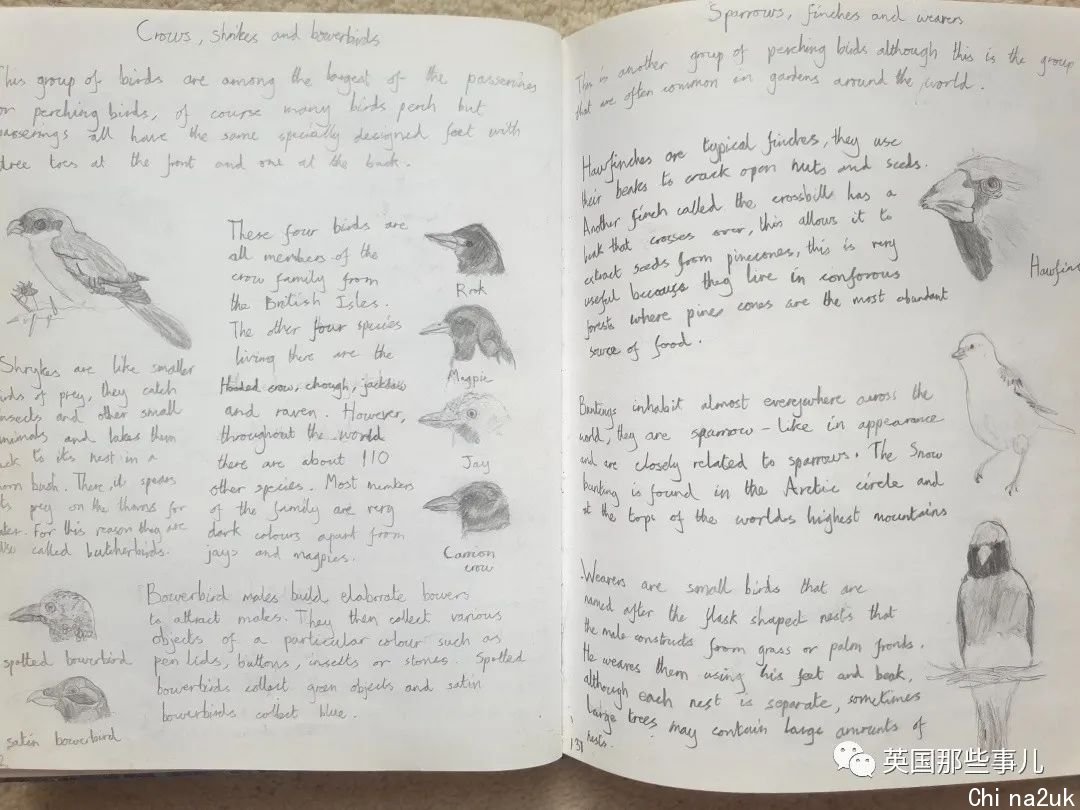 Crows, shrikes and bowerbirds
This group of birds are among the largest of the passerines
or perching birds, of course many birds perch but
passerings all have the same specially designed feet with
three toes at the front and one at the back.
These four birds are
all members of the
crow family from
the British Isles.
The other four species
living there are the
Hooded crow, chough, jackdaw
and raven. However,
throughout the world
there are about 110
other species. Most members
of the family are very
dark colours apart from
jays and magpies.
Rook
Magpie
Jay
Carrion
crow
Shrykes are like smaller
birds of prey, they catch
insects and other small
animals and takes them
back to its nest in a
thorn bush. There, it spears
its prey on the thorns for
later. For this reason they are
also called butcherbirds.
Bowerbird males build elaborrate bowers
to attract males. They them collect various
objects of a particular colour such as
pen lids, buttons, insects or stones. Spotted
bowerbirds collect green objects and satin
bowerbirds collect blue.
spotted bowerbird
satin bowerbird
2
Sparrows, finches and weavers
This is another group of perching birds although this is the group
that are often common in gardens around the world.
Hawfinches are typical finches, they use
their beaks to crack open nuts and seeds.
Another finch called the crossbills has a
beak that crosses over, this allows it to
extract seeds from pinecones, this is very
useful because they live in conforous
forests where pines cones are the most abundant
source of food.
Hawfinc
Buntings inhabit almost everywhere across the
world, they are sparrow-like in appearance
and are closely related to sparrows. The Snow
bunting is found in the Arctic circle and
at the tops of the worlds highest mountains
Weavers are small birds that are
named after the flask shaped nests that
the male constructs from grass or palm fronds.
He weaves them using his feet and beak,
although each nest is separate, sometimes
large trees may contain large amounts of
nests.
131
英国那些事儿
China2uk